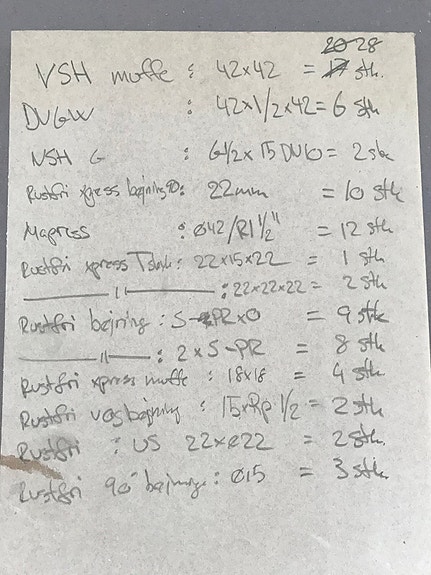 20 28
VSH muffe : 42x42 = 17 stk.
DVGW : 42x1/2x42 = 6 stk
VSH G : G1/2 x 15 DVG = 2 stk
Rustfri xpress bøjning : 22mm = 10 stk
Mapress : Ø42/R1½" = 12 stk
Rustfri xpress Tstk : 22x15x22 = 1 stk
—— 11 —— : 22x22x22 = 2 stk
Rustfri bøjning : S-PRxO = 9 stk
—— 11 —— : 2xS-PR = 8 stk
Rustfri xpress muffe : 18x18 = 4 stk
Rustfri bøjning : 15xRp 1/2 = 2 stk
Rustfri : US 22xø22 = 2 stk.
Rustfri 90° bøjning : Ø15 = 3 stk.